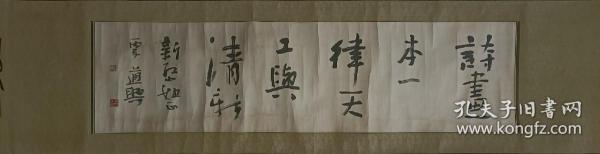 詩畫
本一
律天
工與
清新
道興
孔夫子旧书网
www.kongfz.com